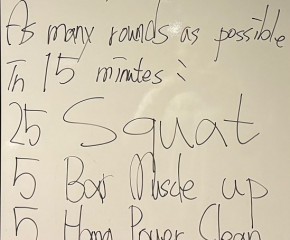 As many rounds as possible
In 15 minutes :
25 Squat
5 Bar Muscle up
5 Hang Power Clean